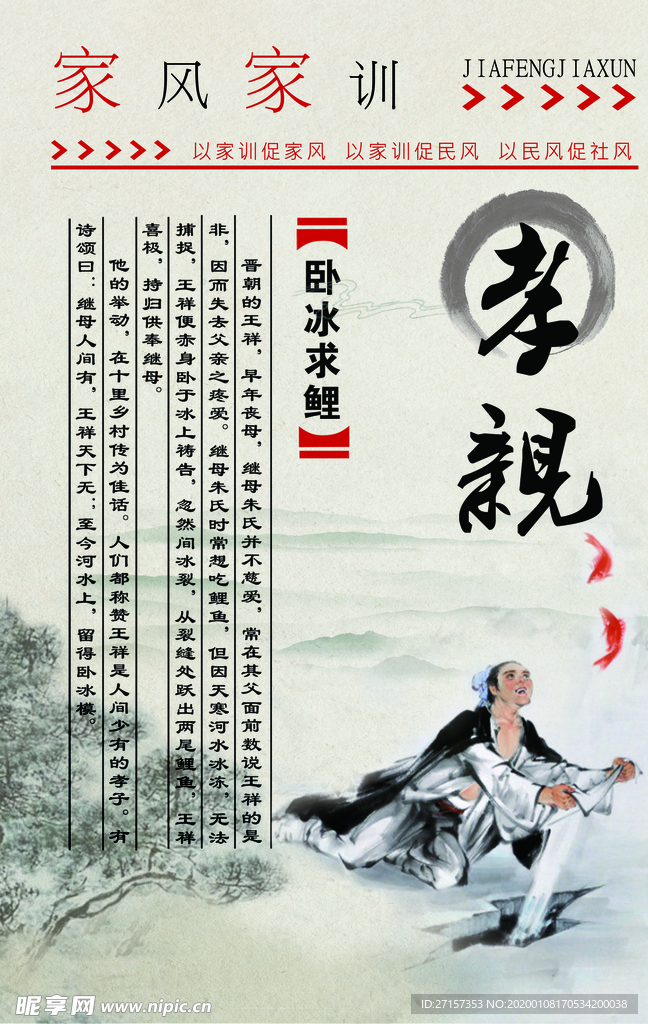 家风家训
JIAFENGJIAXUN
以家训促家风 以家训促民风 以民风促社风
孝親
【卧冰求鲤】
晋朝的王祥，早年丧母，继母朱氏并不慈爱，常在其父面前数说王祥的是
非，因而失去父亲之疼爱。继母朱氏时常想吃鲤鱼，但因天寒河水冰冻，无法
捕捉，王祥便赤身卧于冰上祷告，忽然间冰裂，从裂缝处跃出两尾鲤鱼，王祥
喜极，持归供奉继母。
他的举动，在十里乡村传为佳话。人们都称赞王祥是人间少有的孝子。有
诗颂曰：继母人间有，王祥天下无；至今河水上，留得卧冰模。
昵享网 www.nipic.cn
ID:27157353 NO:20201008170534200038